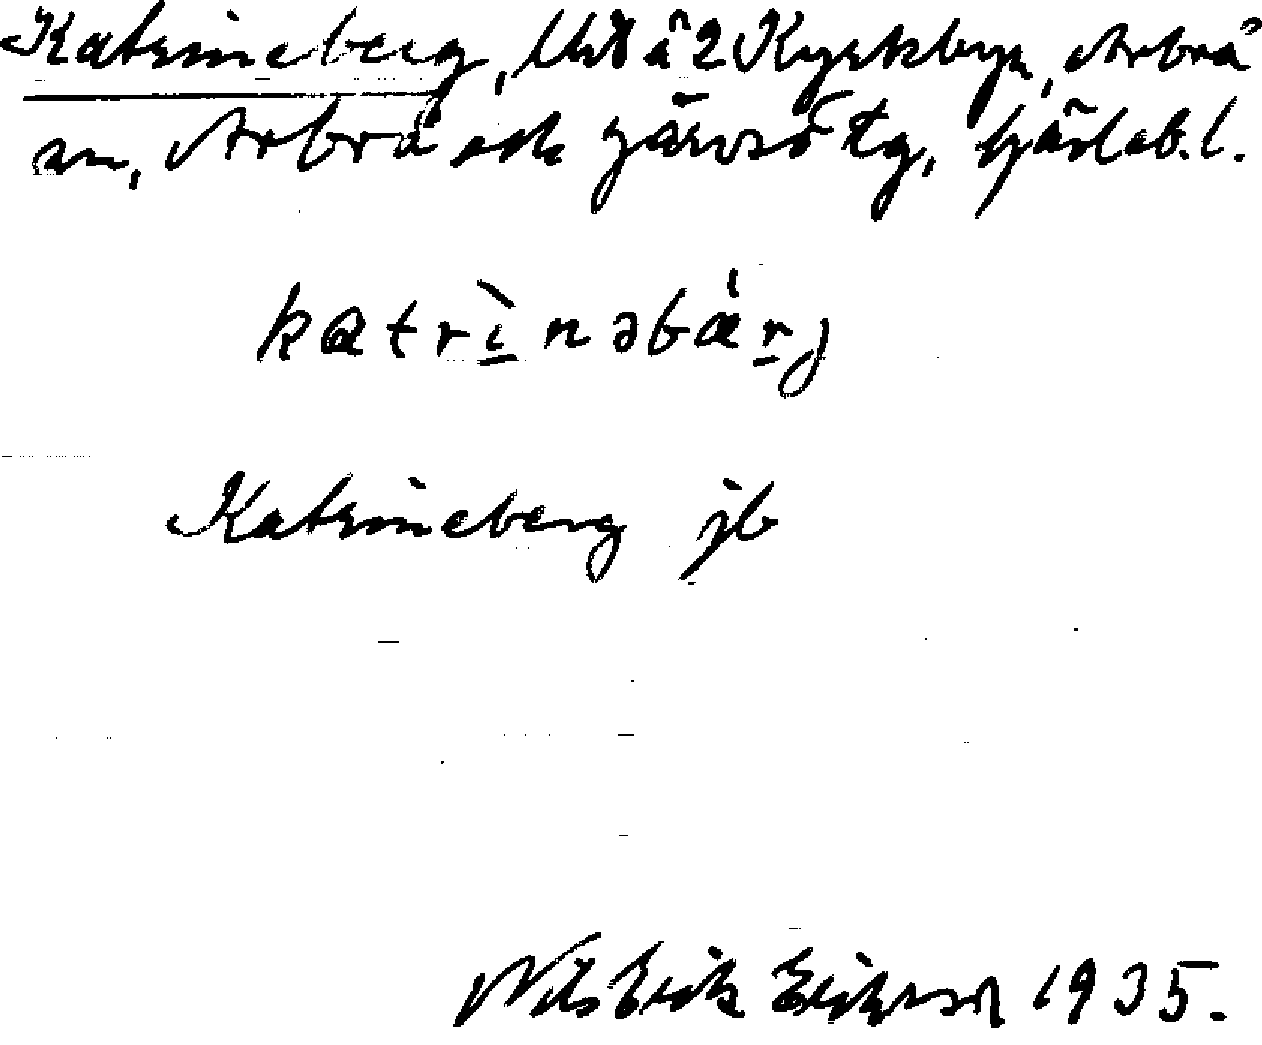 Katrineberg, på 2 Kyrkbyn, Arbrå
sn, Arbrå och Järvsö tg, Gävleb. l.
katrìnəbä́rj
Katrineberg jb
Nils Erik Eriksson 1935.